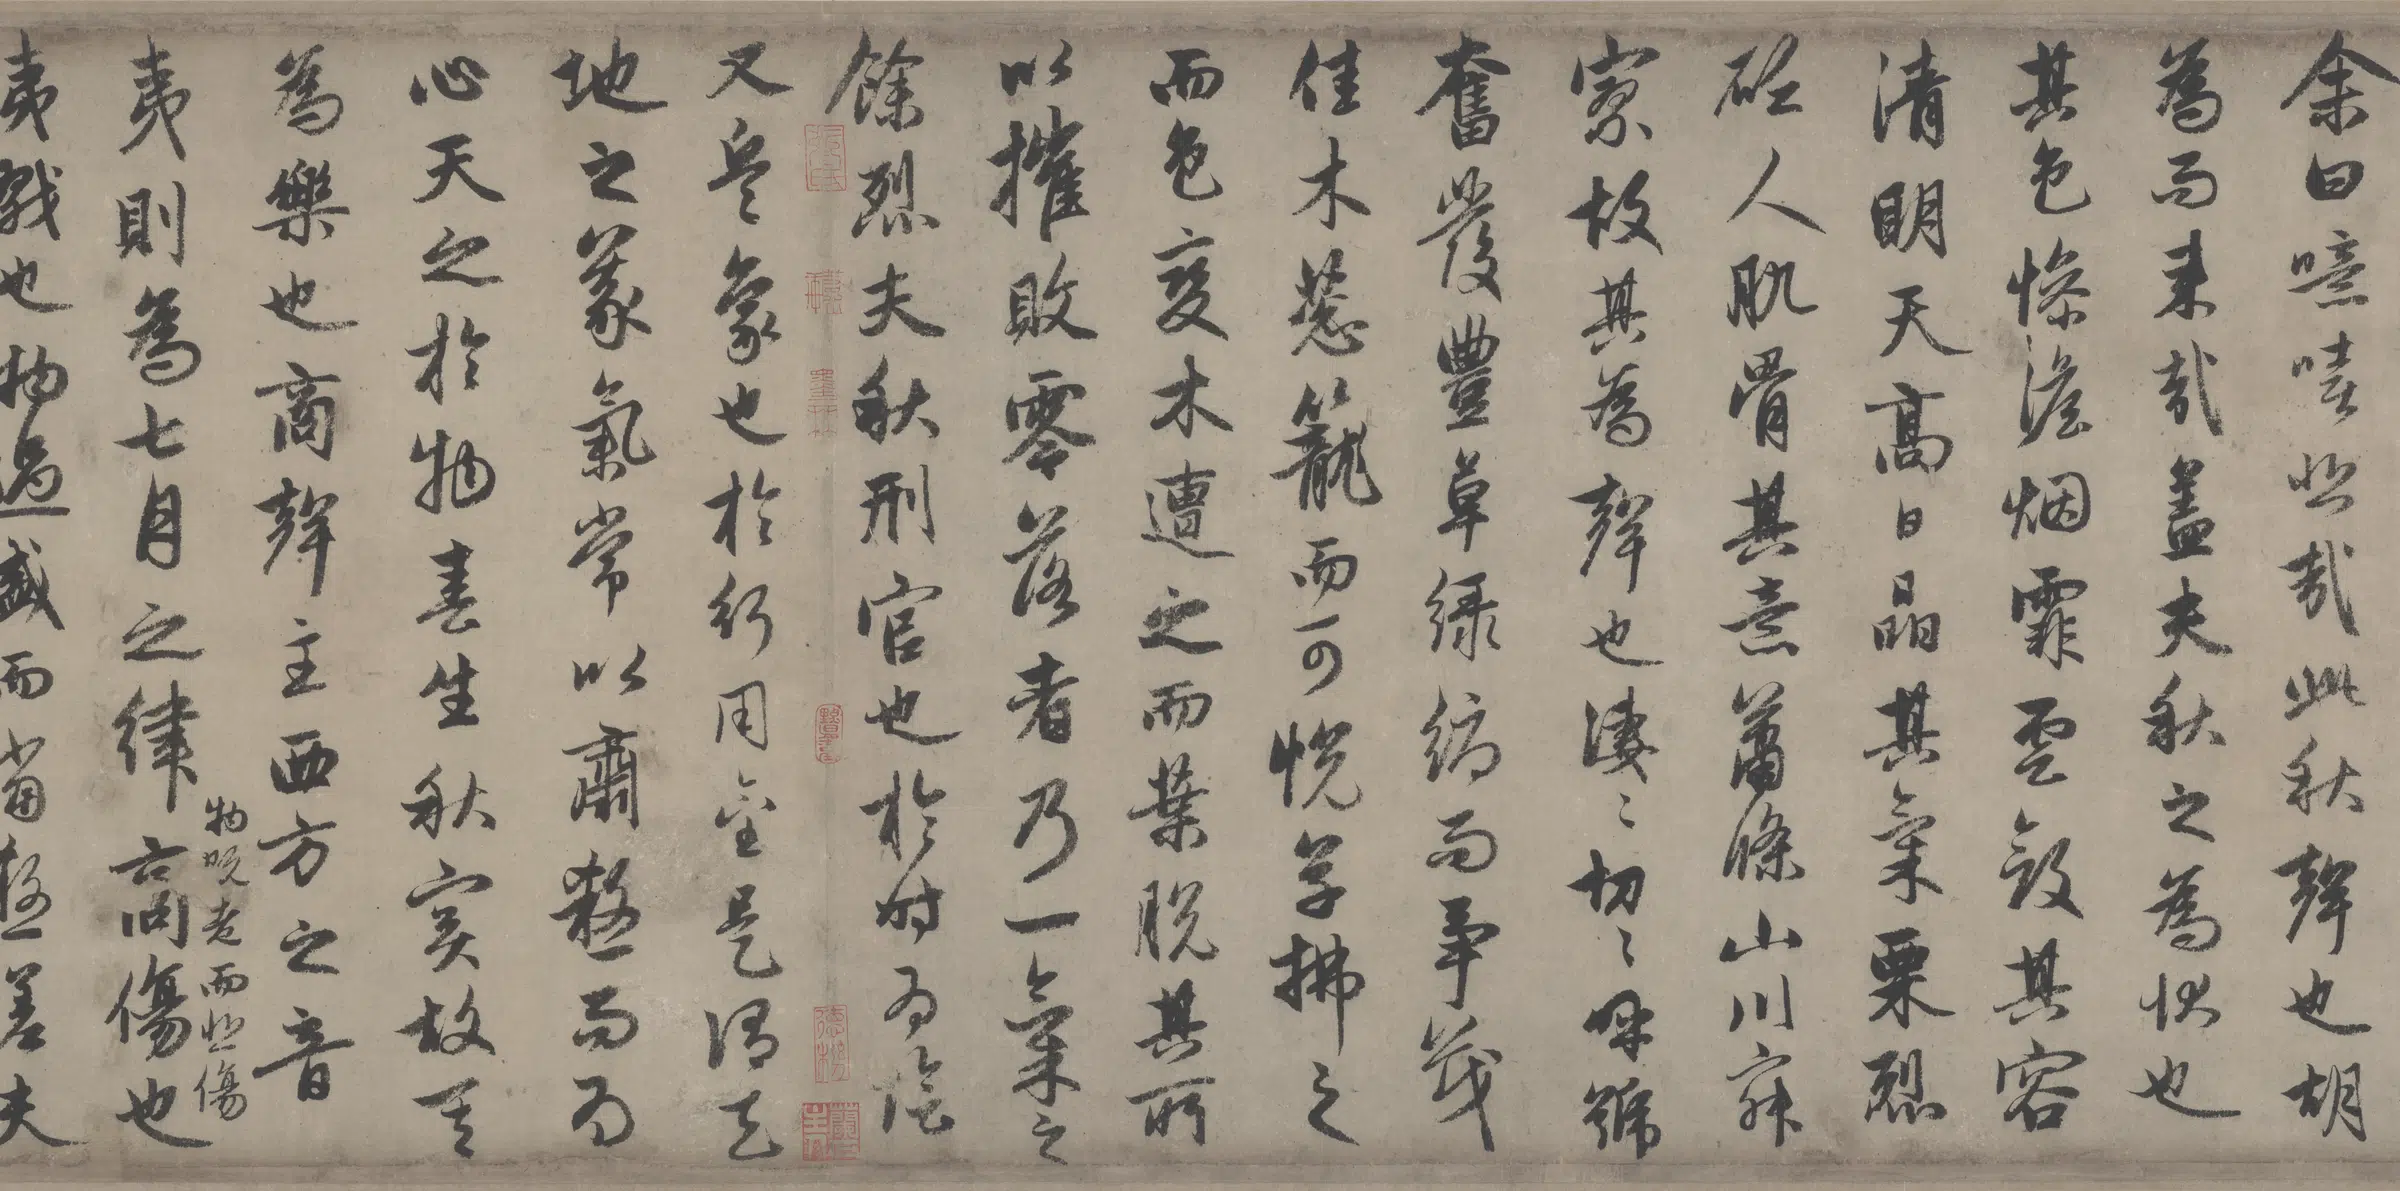 余曰噫嘻悲哉此秋聲也胡
為而來哉蓋夫秋之為狀也
其色慘澹烟霏雲斂其容
清明天高日晶其氣栗烈
砭人肌骨其意蕭條山川寂
寥故其為聲也淒〻切〻呼號
奮發豐草綠縟而爭茂
佳木葱籠而可悅草拂之
而色變木遭之而葉脫其所
以摧敗零落者乃一氣之
餘烈夫秋刑官也於時為陰
又兵象也於行用金是謂天
地之義氣常以肅殺而為
心天之於物春生秋實故其
為樂也商聲主西方之音
夷則為七月之律商傷也
物既老而悲傷
夷戮也物過盛而當殺嗟夫